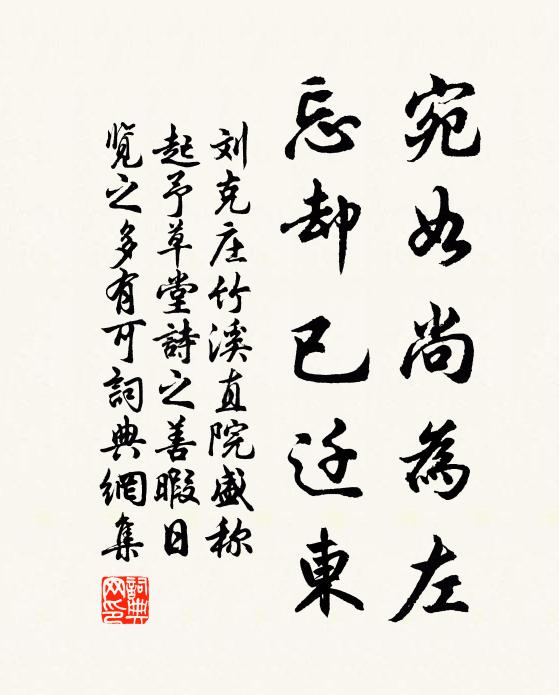 宛如尚為左
忘却已迁東
刘克庄竹溪直院盛称
起予草堂詩之善暇日
覽之多有可詞典網集
詞典網印